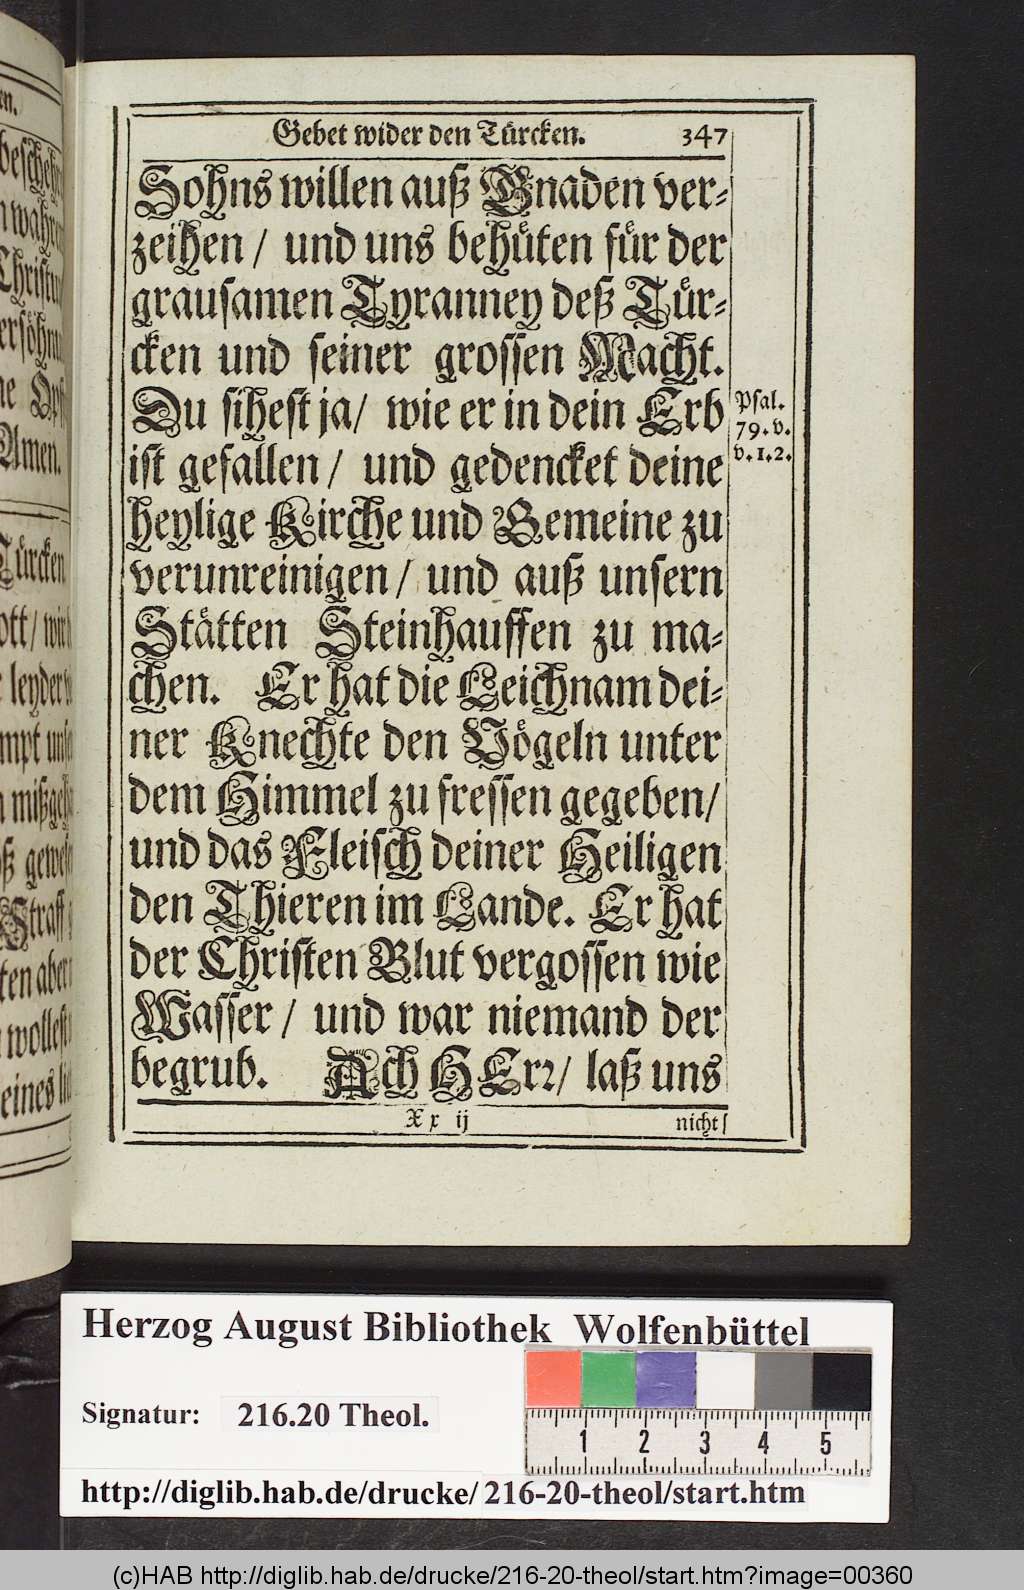 Gebet wider den Türcken. 347
Sohns willen auß Gnaden ver-
zeihen / und uns behüten für der
grausamen Tyranney deß Tür-
cken und seiner grossen Macht.
Du sihest ja / wie er in dein Erb
ist gefallen / und gedencket deine
heylige Kirche und Gemeine zu
verunreinigen / und auß unsern
Stätten Steinhauffen zu ma-
chen. Er hat die Leichnam dei-
ner Knechte den Vögeln unter
dem Himmel zu fressen gegeben /
und das Fleisch deiner Heiligen
den Thieren im Lande. Er hat
der Christen Blut vergossen wie
Wasser / und war niemand der
begrub. Ach HErr / laß uns
Xx ij nicht
Psal.
79. v.
v. 1. 2.
en.
Türcken
ott / wir
leyder
Amen.
Herzog August Bibliothek Wolfenbüttel
Signatur: 216.20 Theol.
1 2 3 4 5
http://diglib.hab.de/drucke/216-20-theol/start.htm
(c)HAB http://diglib.hab.de/drucke/216-20-theol/start.htm?image=00360